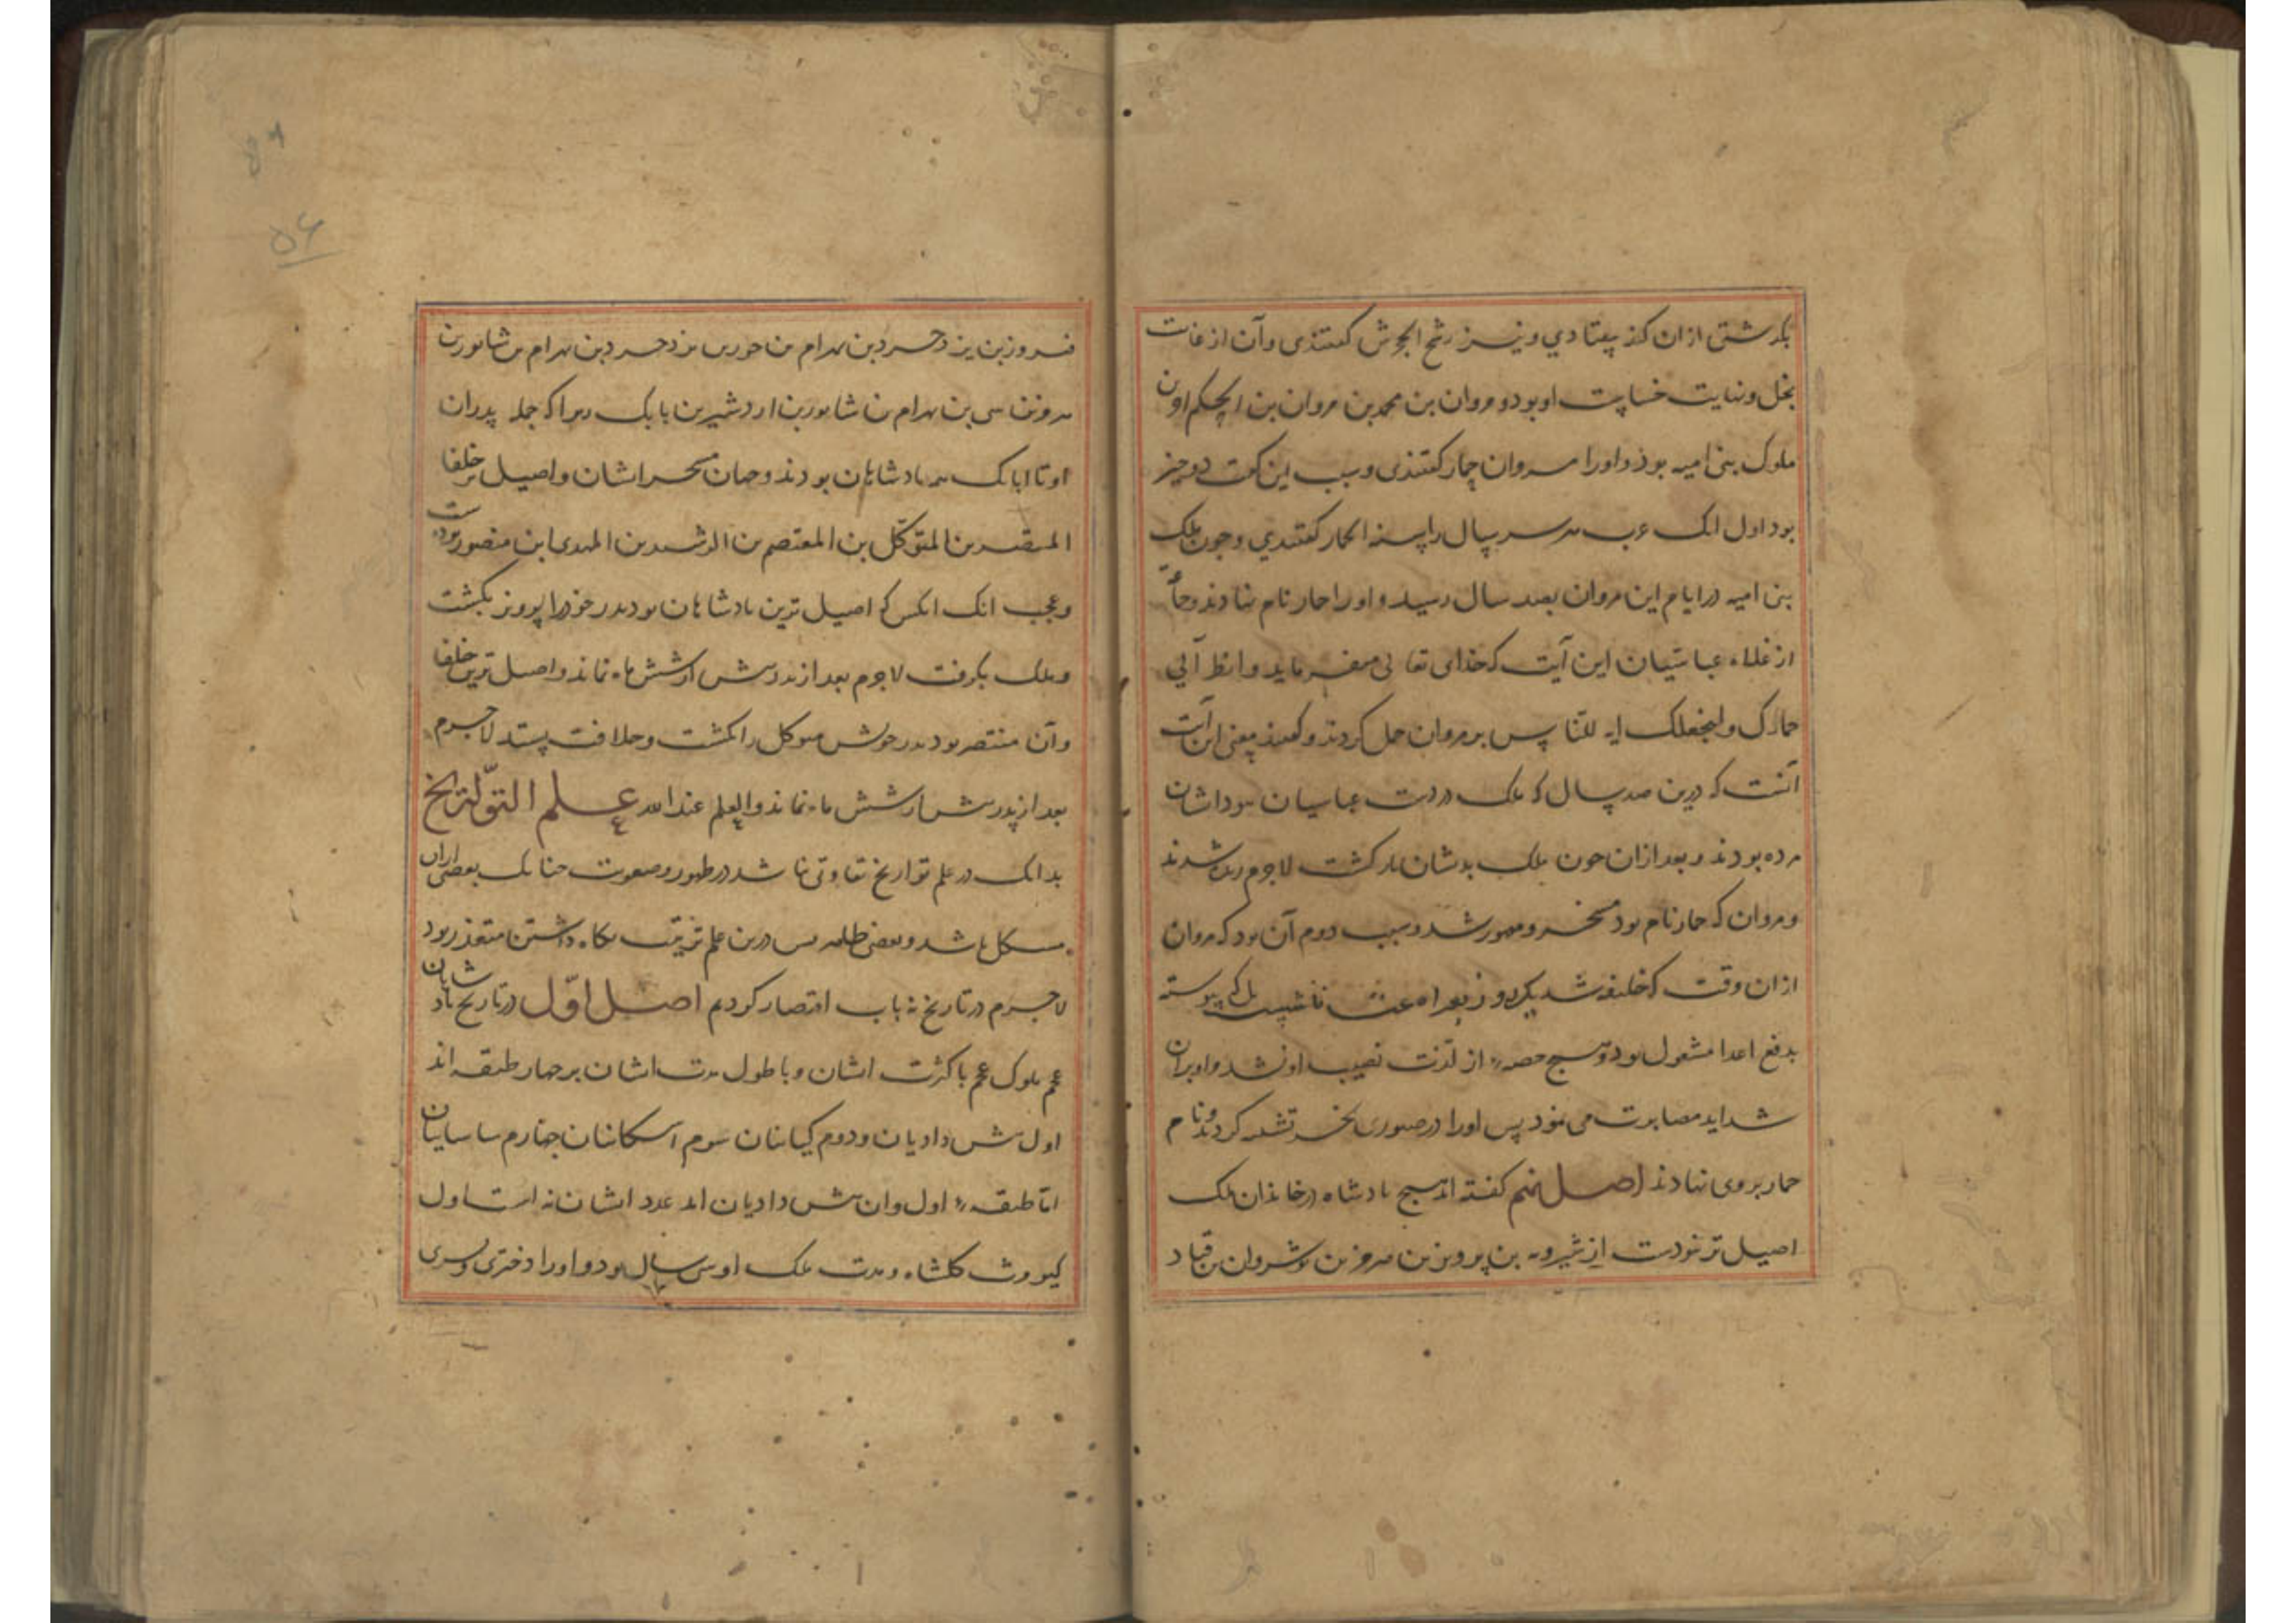 بگذشتی ازان کند بیفتادی و نیز رشح الحجرش گفتندی وآن از غایت
بخل ونهایت خساست او بود و مروان بن محمد بن مروان بن الحکم اون
ملوک بنی امیه بوذ واورا مروان حمار گفتندی وسبب این کنت دو چیز
بود اول انک عرب هر سر سال را سنة الحمار گفتندی وجون ملک
بنی امیه در ایام این مروان بصد سال رسید و اورا حمار نام نهادند وجماعتی
از علماء عباسیان این آیت که خدای تعالی میفرماید وانظر الی
حمارک ولنجعلک آیه للناس بر مروان حمل کردند و گفتند معنی این آیت
آنست که درین صد سال که ملک در دست عباسیان بود ایشان
مرده بودند و بعد ازان جون ملک بدیشان باز گشت لاجرم زنده شدند
و مروان که حمار نام بود مسخر و مقهور شد و سبب دوم آن بود که مروان
ازان وقت که خلیفه شد یکروز بفراغت ننشست بل که پیوسته
بدفع اعدا مشغول بود وهیج حصهٔ از لذت نصیب او نشد و او بران
شداید مصابرت می نمود پس اورا در صبوری بخر تشبیه کردند ونام
حمار بروی نهادند اصل نهم گفته اند هیج بادشاه در خاندان ملک
اصیل تر نبودست از شیرویه بن پرویز بن هرمز بن نوشروان بن قباد
فیروز بن یزدجرد بن بهرام بن جور بن یزدجرد بن بهرام بن شابور بن
هرمز بن نرسی بن بهرام بن شابور بن اردشیر بن بابک زیرا که جمله پدران
او تا بابک همه بادشاهان بودند وجهان مسخر ایشان واصیل تر خلفا
المنتصر بن المتوکل بن المعتصم بن الرشید بن المهدی ابن منصور بودست
وعجب انک انکس که اصیل ترین بادشاهان بود پدر خود را پرویز بکشت
وملک بگرفت لاجرم بعد از پدرش از شش ماه نماند واصیل ترین خلفا
وآن منتصر بود پدر خویش متوکل را بکشت وخلافت بستد لاجرم
بعد از پدرش از شش ماه نماند والعلم عند الله علم التواریخ
بدانک در علم تواریخ تفاوتی نباشد در ظهور وصعوبت چنانک بعضی ازان
مشکل باشد وبعضی ظاهر پس درین علم ترتیب نگاه داشتن متعذر بود
لاجرم در تاریخ نه باب اقتصار کردیم اصل اول در تاریخ بادشاهان
عجم ملوک عجم با کثرت ایشان وبا طول مدت ایشان بر جهار طبقه اند
اول پیش دادیان ودوم کیانیان سوم اشکانیان جهارم ساسانیان
اما طبقهٔ اول وان پیش دادیان اند عدد ایشان نه است اول
کیومرث گلشاه ومدت ملک او سی سال بود واورا دختری وپسری
۵۶